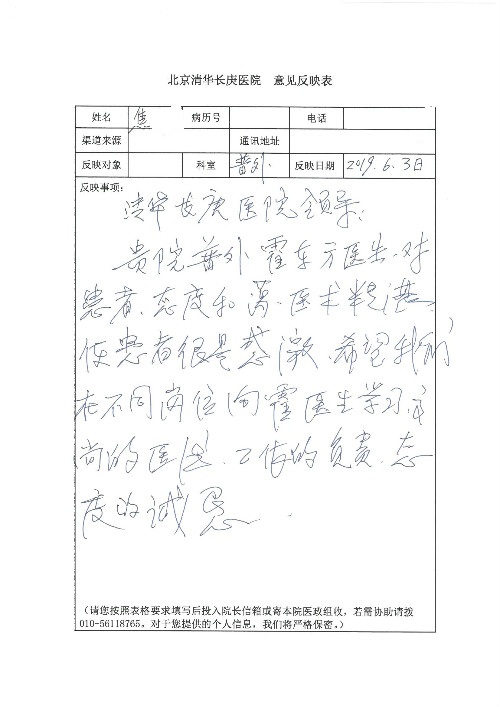 北京清华长庚医院 意见反映表
姓名 焦 病历号 电话
渠道来源 通讯地址
反映对象 科室 普外 反映日期 2019.6.3日
反映事项:
清华长庚医院领导:
贵院普外霍东方医生.对
患者.态度和蔼.医术精湛.
使患者很是感激.希望我们
在不同岗位向霍医生学习.高
尚的医德.工作的负责.态
度的诚恳.
(请您按照表格要求填写后投入院长信箱或寄本院医政组收,若需协助请拨
010-56118765,对于您提供的个人信息,我们将严格保密。)